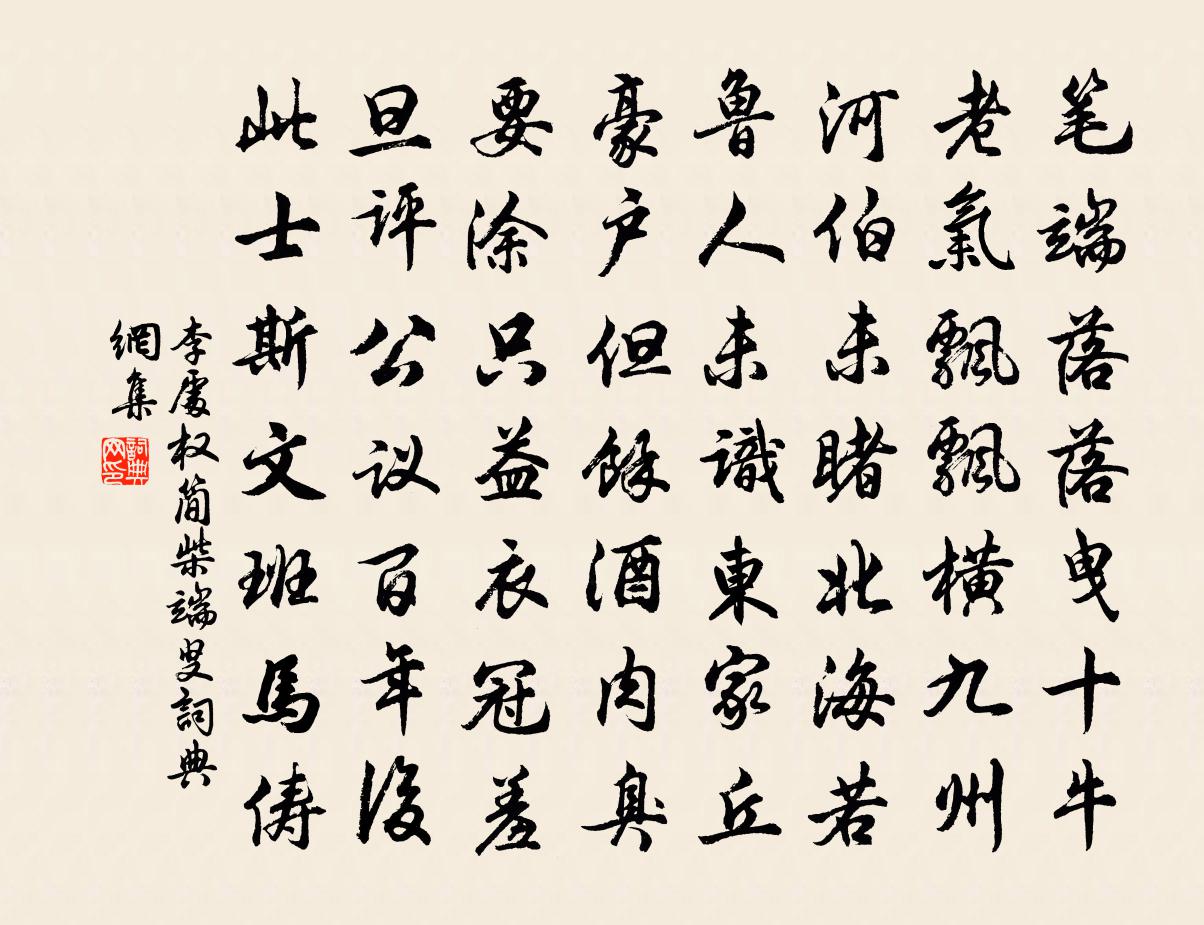 笔端落落曳十牛
老氣飄飄橫九州
河伯未睹北海若
魯人未識東家丘
豪户但餘酒肉臭
要涂只益衣冠羞
旦评公议百年後
此士斯文班馬儔
李處权简柴端叟詞典
網集
詞典网印